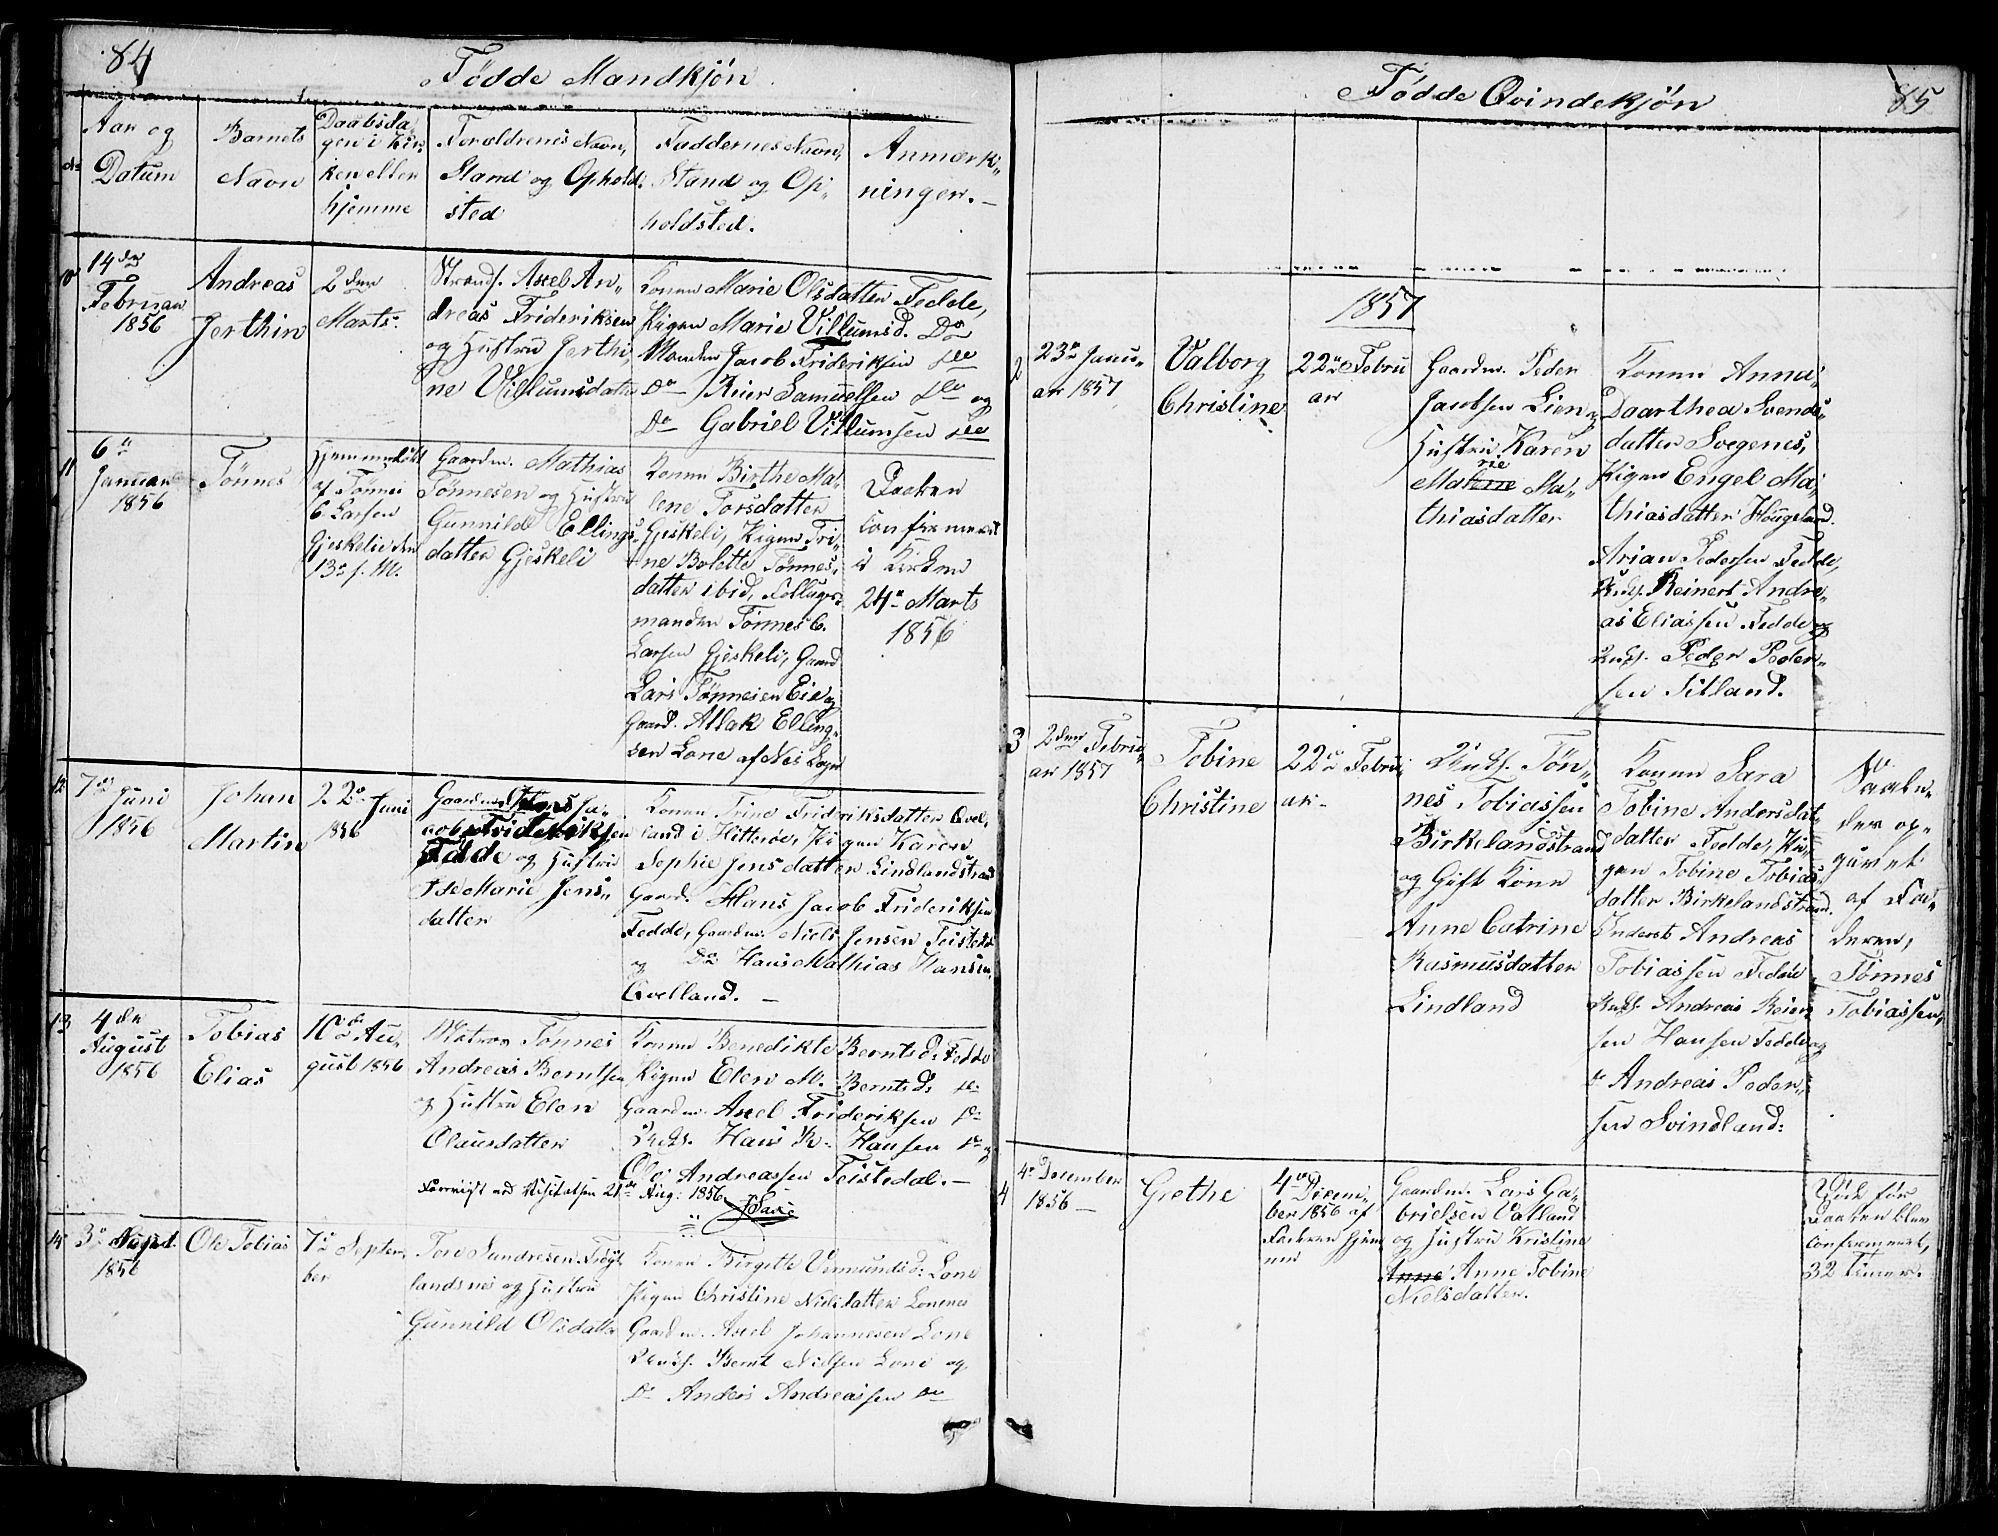 84
Fødde Mandkjøn
Aar og
Datum
Barnets
Navn
Daabsda„
gen i Kir„
ken eller
hjemme
Forældrenes Navn,
Stand og Ophold„
sted
Faddernes Navn,
Stand og Op„
holdsted.
Anmærk„
ninger. –
10
14den
Februar
1856
Andreas
Jerthin
2den
Marts
Strands. Axel An„
dreas Frideriksen
og Hustru Jerthi„
ne Villumsdatter
Konen Marie Olsdatter Fedde,
Pigen Marie Villumsd. Do
Manden Jacob Frideriksen do
Do Reier Samuelsen do og
Do Gabriel Villumsen do
11
6te
Januar
1856
Tønnes
Hjemmedøbt
af Tønnes
C. Larsen
Gjeskelie den
13de s. M.
Gaardm. Mathias
Tønnesen og Hustru
Gunnilde Ellings„
datter Gjeskeli
Konen Birthe Ma„
lene Torsdatter
Gjeskeli, Pigen Tri„
ne Bolette Tønnes„
datter ibid,
manden Tønnes C.
Larsen Gjeskeli, Gaard
Lars Tønnesen Eie og
Gaard. Atlak Elling„
sen Lone af Nes Sogn
Daaben
confirmeret
i Kirken
24de Marts
1856
12
7de
Juni
1856
Johan
Martin
22de Juni
1856
Gaardm. Hans Ja„
cob Frideriksen
Fedde og Hustru
Marie Jens„
datter
Konen Trine Frideriksdatter Qvel„
land i Hitterøe, Pigen Karen
Sophie Jensdatter Lindlandstrand
Gaard. Hans Jacob Frideriksen
Fedde, Gaardm. Niels Jensen Teistedal
og Do Hans Mathias Hansen
Qvelland. –
13
4de
August
1856
Tobias
Elias
10de Au„
gust 1856
Matros Tønnes
Andreas Berntsen
og Hustru Elen
Olausdatter
Konen Benedikte Berntsd. Fedde
Pigen Elen M. Berntsd: do
Gaardm. Axel Frideriksen do
Hans R. Hansen do og
Ole Andreassen Teistedal. –
Forevist ved Visitatsen 21de Aug: 1856
14
3de August.
1856
Ole Tobias
7de Septem„
ber
Tore Sundresen
landsnes og Hustru
Gunnild Olsdatter
Konen Birgitte Vermundsd: Lone
Pigen Christine Nielsdatter Lonenes
Gaardm. Axel Johannesen Lone
Bernt Nielsen Lone og
Do Anders Andreassen do
Fødde Qvindekjøn
85
1857
2
23de Janu„
ar 1857
Valborg
Christine
22de Febru
ar
Gaardm. Peder
Jacobsen Lien og
Hustru Karen
rie
Malene Ma„
thiasdatter
Konen Anna
Daarthea Svends„
datter Svegenes,
Pigen Engel Ma„
thiasdatter Hougeland.
Arian Pedersen Fedde,
Reinert Andre„
as Eliassen Fedde og
Peder Peder„
sen Silland.
3
2den Febru„
ar 1857
Tobine
Christine
22de Febru„
ar –
Tøn„
nes Tobiassen
Birkelandstrand
og Gift Kone
Anne Catrine
Rasmusdatter
Lindland
Konen Sara
Tobine Andersdat„
datter Fedde, Pi„
gen Tobine Tobias„
datter Birkelandstrand.
Inderst Andreas
Tobiassen Fedde
Andreas Reier
sen Hansen Fedde og
do Andreas Peder„
sen Svindland:
Saale„
des op„
givet
af Fa„
deren,
Tønnes
Tobiassen,
4
4de December
1856 –
Grethe
4de Decem„
ber 1856 af
Faderen hjem
me
Gaardm. Lars Ga„
brielsen Valland
og Hustru Kristine
Anne Anne Tobine
Nielsdatter.
Døde før
Daaben blev
confirmeret,
32 Timer.